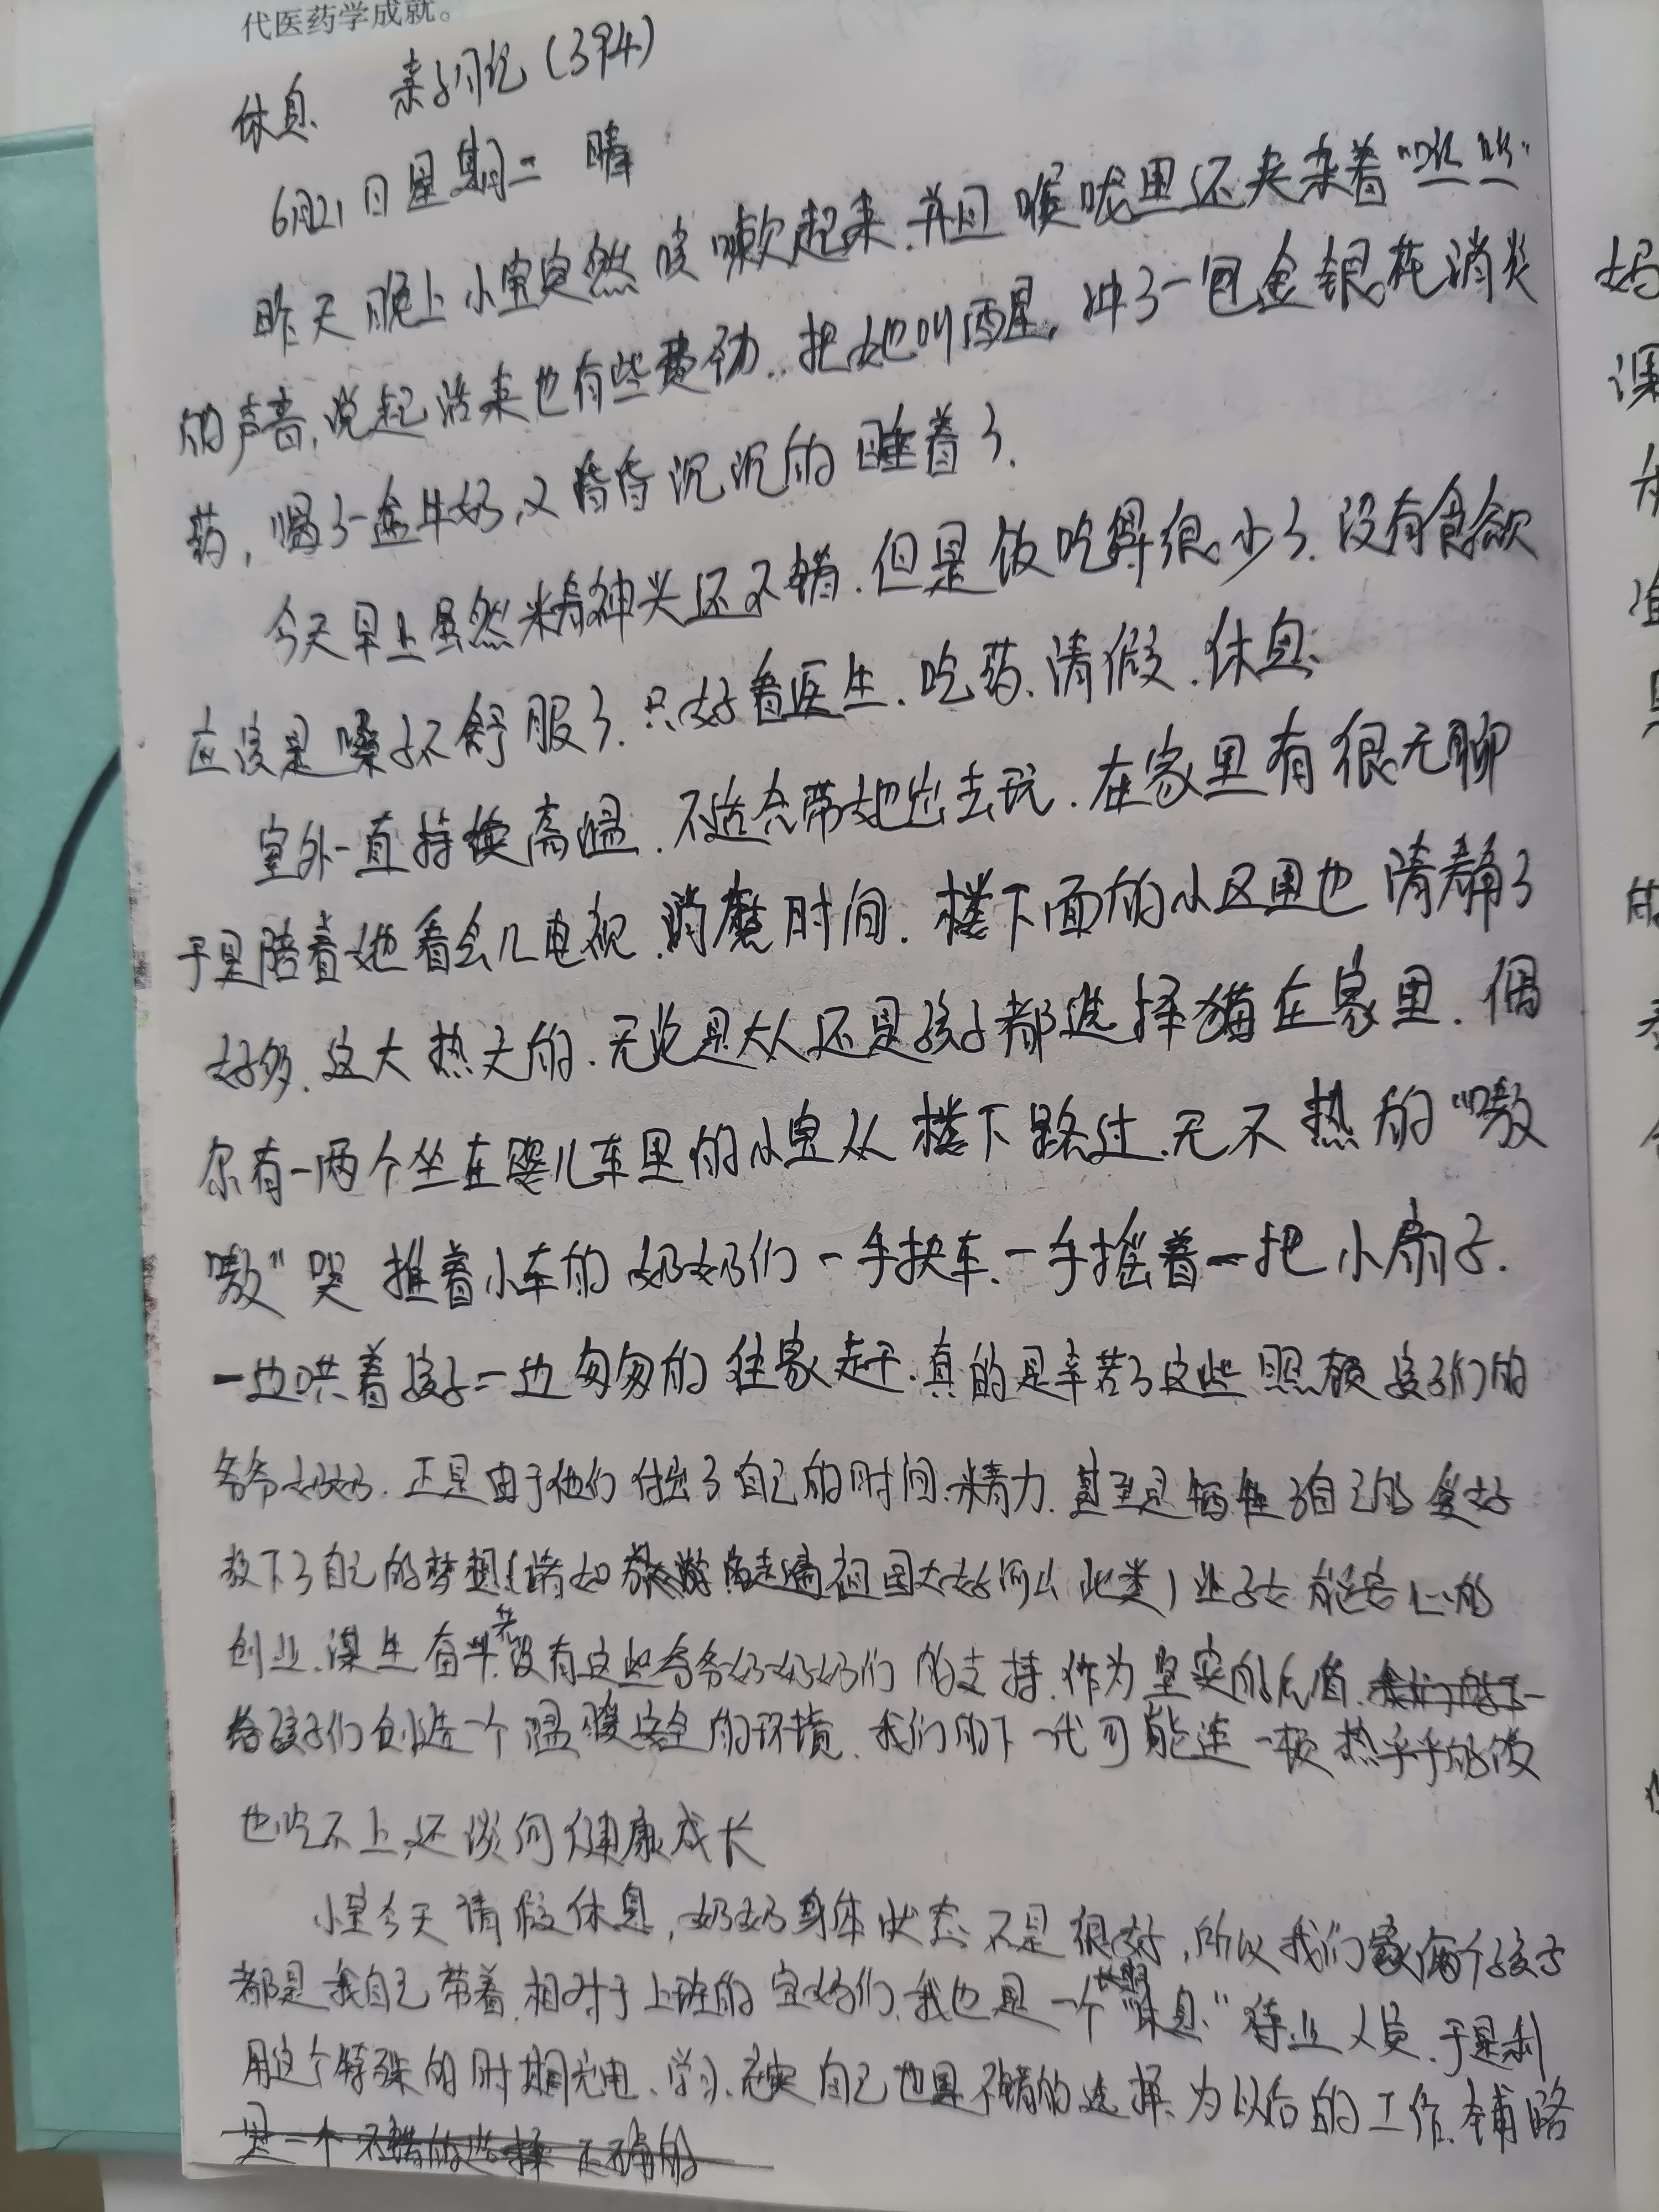 代医药学成就。
休息 亲子日记(394)
6月21日星期二 晴
昨天晚上小宝突然咳嗽起来.并且喉咙里还夹杂着"咝咝"
的声音,说起话来也有些费劲..把她叫醒,冲了一包金银花消炎
药,喝了一盒牛奶,又昏昏沉沉的睡着了.
今天早上虽然精神头还不错.但是饭吃得很少了.没有食欲
应该是嗓子不舒服了.只好看医生.吃药、请假.休息
室外一直持续高温.不适合带她出去玩.在家里有很无聊
于是陪着她看会儿电视.消磨时间.楼下面的小区里也清静了
好多.这大热天的.无论是大人还是孩子都选择猫在家里.偶
尔有一两个坐在婴儿车里的小宝从楼下路过.无不热的"嗷
嗷"哭 推着小车的奶奶们一手扶车、一手摇着一把小扇子.
一边哄着孩子一边匆匆的往家赶.真的是辛苦了这些照顾孩子们的
爷爷奶奶.正是由于他们付出了自己的时间.精力.甚至是牺牲了自己的爱好
放下了自己的梦想(诸如 走遍祖国大好河山此类)儿子女能安心的
创业.谋生.奋斗.若没有这些爷爷奶奶奶们的支持.作为坚实的后盾.
给孩子们创造一个温暖安全的环境.我们的下一代可能连一顿热乎乎的饭
也吃不上,还谈何健康成长
小宝今天请假休息,奶奶身体状态不是很好,所以我们家俩个孩子
都是我自己带着.相对于上班的宝妈们.我也是一个"休息"待业人员.于是利
用这个特殊的时期充电、学习、充实自己也是不错的选择.为以后的工作.铺路
是一个不错的选择
妈
课